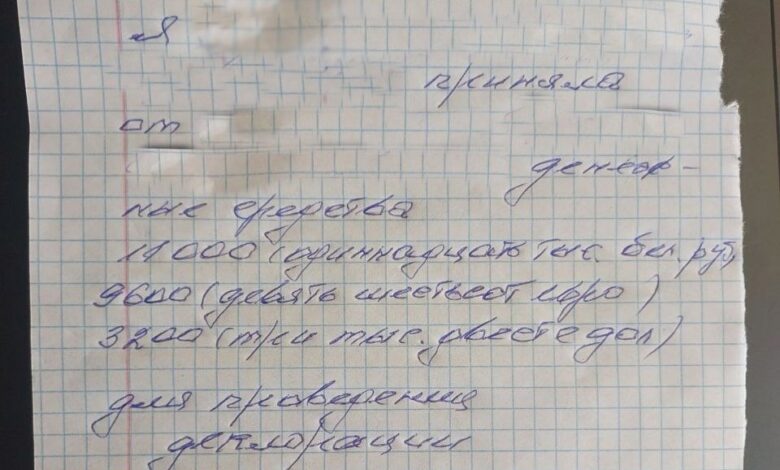 Я
приняла
от
денеж-
ные средства
11000 (одиннадцать тыс. бел. руб,
9600 (девять шестьсот евро)
3200 (три тыс. двесте дол)
для проверениц
декларации